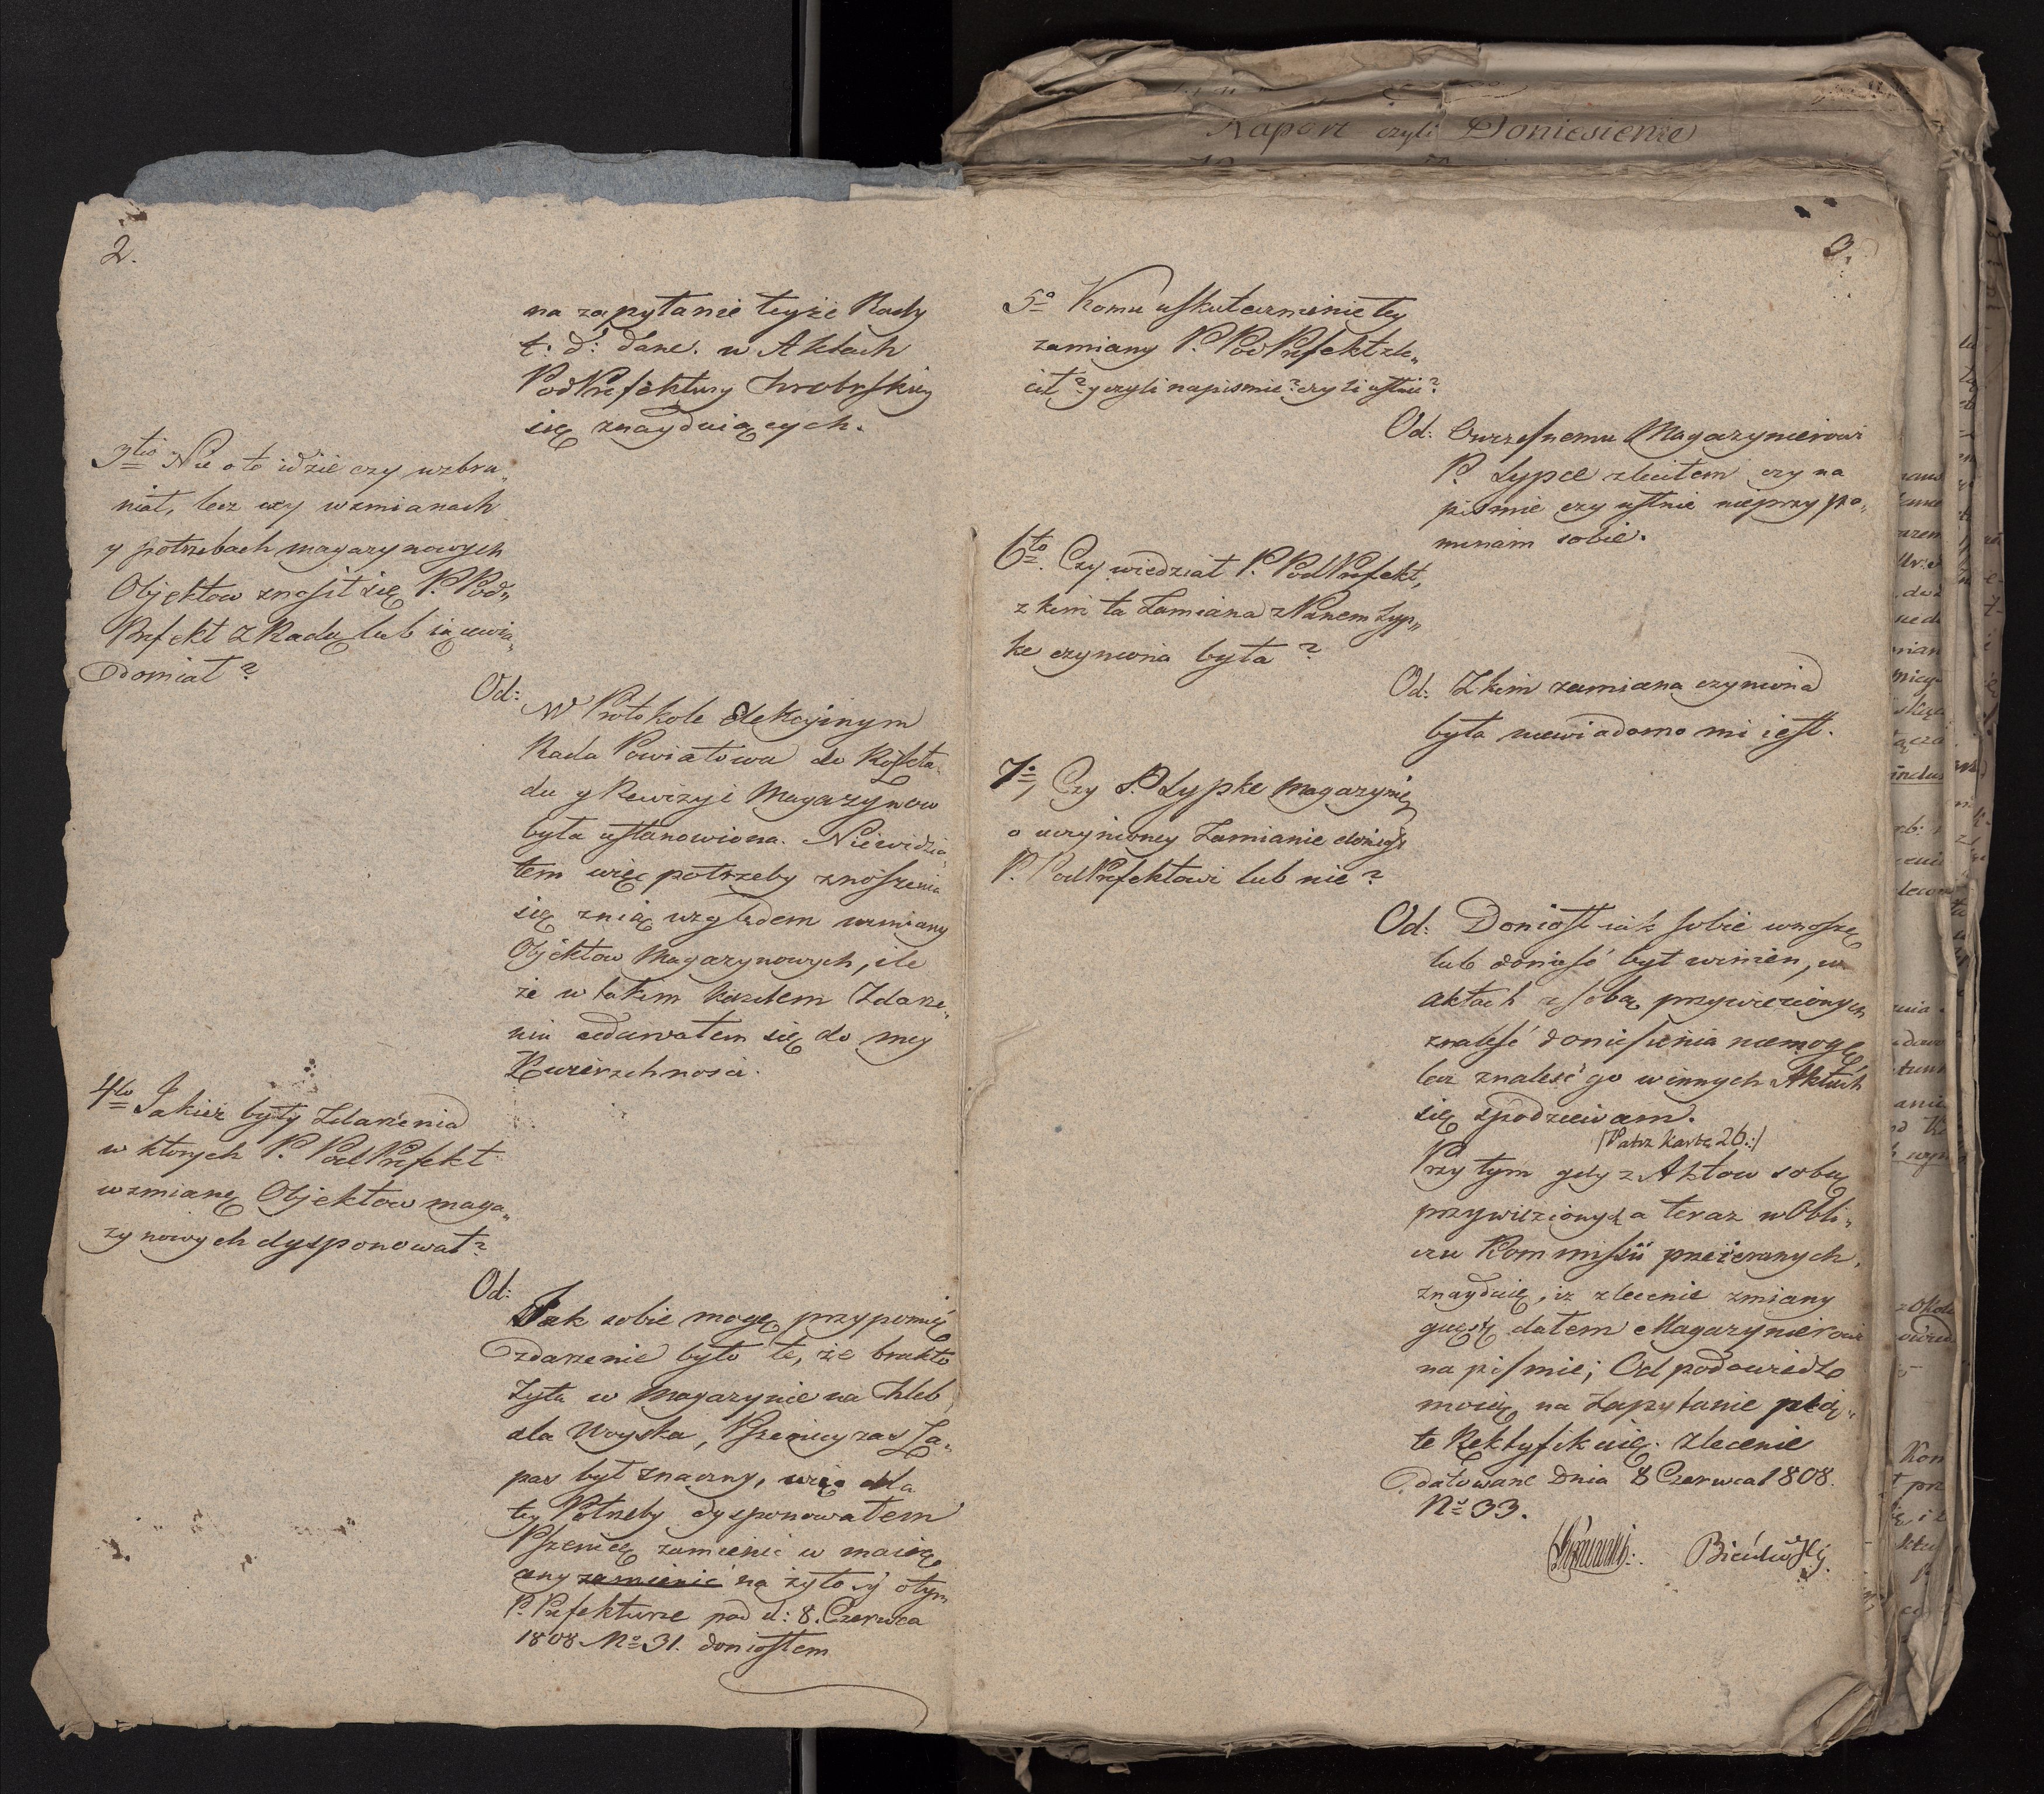 Raport czyli Doniesienie
2.
na zapytanie teyże Rady
t: d: dane. w Aktach
PodPrefektury
się znayduiących.
3tio Nie oto idzie czy wzbra„
niał, lecz czy wzmianach
y potrzebach magazynowych
Objektow znosił się P. Pod„
Prefekt z Radą lub ią uwia„
domiał?
Od: W Protokole elekcyinym
Rada Powiatowa do Roskła„
du y Rewizyi Magazynow
była ustanowiona. Niewidzia„
łem więc potrzeby znoszenia
się znią względem zamiany
Objektow Magazynowych, ile
że w takim każdem Zdarze„
niu udawałem się do mey
Zwierzchności.
4to Jakież były Zdarzenia
w ktorych P. PodPrefekt
wzmianę Objektow maga„
zynowych dysponował?
Od:
Jak sobie mogę przypomnieć
zdarzenie było te, że brakło
Żyta w Magazynie na Chleb
dla Woyska, Pszenicy zas Za„
pas był znaczny, więc dla
tey Potrzeby dysponowałem
Pszenicę zamienić w
zamienić na żyto y otym
P. Prefekturze pod d: 8. Czerwca
1808 No 31. doniosłem
3.
5o Komu uskutecznienie tey
zamiany P. PodPrefekt zle„
cił? y czyli napismie? czyli ustnie?
Od: Owczesnemu Magazynierowi
P. Lypce zleciłem czy na
pismie czy ustnie nieprzypo„
minam sobie.
6to. Czy wiedział P. PodPrefekt,
z kim ta Zamiana z Panem Lyp„
ke czyniona była?
Od: Z kim zamiana czyniona
była niewiadomo mi iest.
7o, Czy P. Lypke Magazynier
o uczynioney Zamianie doniosł
P. PodPrefektowi lub nie?
Od: Doniosł iak sobie wnoszę
lub doniesć był winien, w
aktach z sobą przywiezionych
znalesć doniesienia niemogę
lecz znalesć go winnych Aktach
się spodziewam.
/Patrz Kartę 26.:/
Przytym gdy z Aktow sobą
przywiezionych a teraz w Obli„
czu Kommissii przeieranych,
znayduię, iz zlecenie zmiany
dałem Magazynierowi
na pismie; Odpodowiedz
moię na Zapytanie pią„
te Rektyfikuię. Zlecenie
datowane Dnia 8 Czerwca 1808.
No 33.